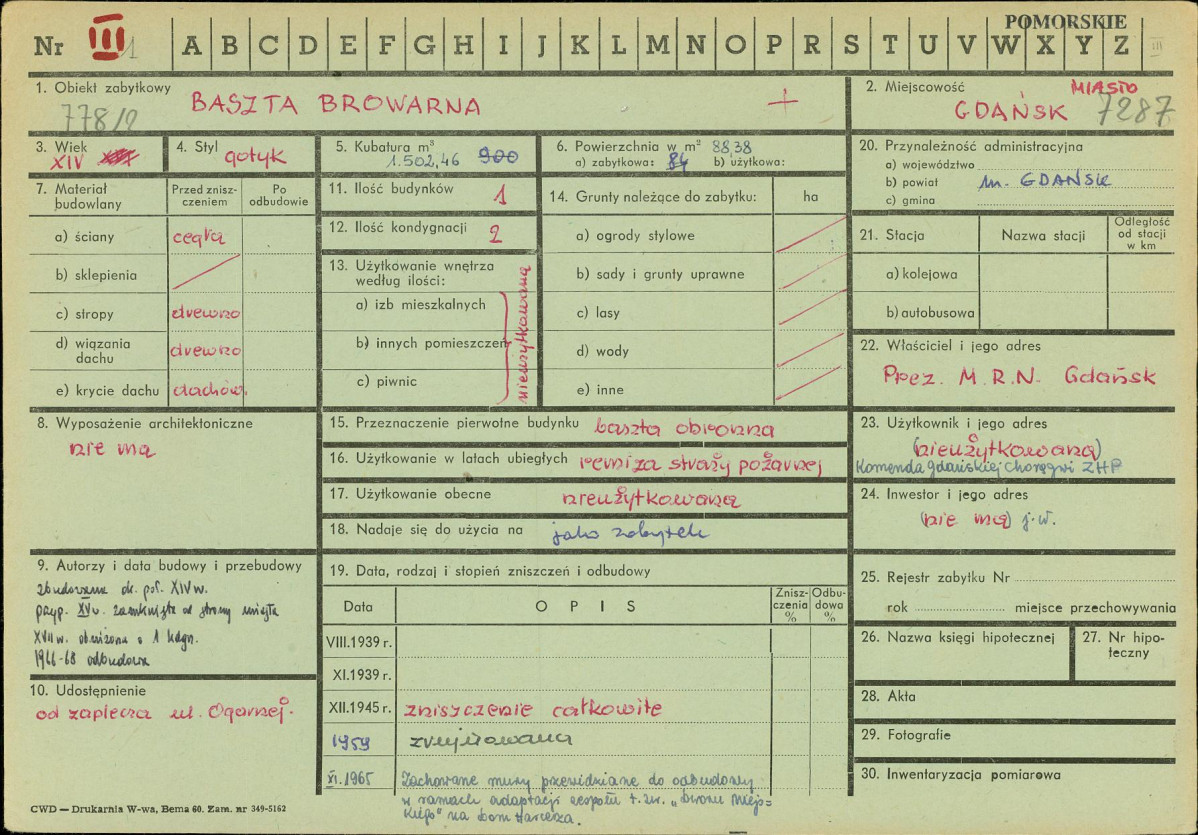 POMORSKIE
Nr III 1 A B C D E F G H I J K L M N O P R S T U V W X Y Z III
1. Obiekt zabytkowy
778/2
BASZTA BROWARNA +
2. Miejscowość
MIASTO
GDAŃSK 7287
3. Wiek
XIV
4. Styl
gotyk
5. Kubatura m³
1.502,46 900
6. Powierzchnia w m² 88,38
a) zabytkowa: 84 b) użytkowa:
20. Przynależność administracyjna
a) województwo
b) powiat m. GDAŃSK
c) gmina
7. Materiał budowlany
Przed zniszczeniem
Po odbudowie
a) ściany cegła
b) sklepienia
c) stropy drewno
d) wiązania dachu drewno
e) krycie dachu dachów.
11. Ilość budynków 1
12. Ilość kondygnacji 2
13. Użytkowanie wnętrza
według ilości:
a) izb mieszkalnych
b) innych pomieszczeń
c) piwnic
nieużytkowana
14. Grunty należące do zabytku: ha
a) ogrody stylowe
b) sady i grunty uprawne
c) lasy
d) wody
e) inne
21. Stacja
Nazwa stacji
Odległość
od stacji
w km
a) kolejowa
b) autobusowa
22. Właściciel i jego adres
Prez. M.R.N. Gdańsk
8. Wyposażenie architektoniczne
nie ma
15. Przeznaczenie pierwotne budynku baszta obronna
16. Użytkowanie w latach ubiegłych remiza straży pożarnej
17. Użytkowanie obecne nieużytkowana
18. Nadaje się do użycia na jako zabytek
23. Użytkownik i jego adres
(nieużytkowana)
Komenda Gdańskiej Chorągwi ZHP
24. Inwestor i jego adres
(nie ma) j.w.
9. Autorzy i data budowy i przebudowy
zbudowana ok. poł. XIV w.
przyp. XV w. zamknięta od strony miasta
XVII w. obniżona o 1 kdgn.
1966-68 odbudowa
10. Udostępnienie
od zaplecza ul. Ogarnej.
19. Data, rodzaj i stopień zniszczeń i odbudowy
Data
OPIS
Zniszczenia
%
Odbudowa
%
VIII.1939 r.
XI.1939 r.
XII.1945 r. zniszczenie całkowite
1959 zrujnowana
XI.1965 Zachowane mury przewidziane do odbudowy
w ramach adaptacji zespołu t.zw. „Dworu Miej=
kiego" na Dom Harcerza.
25. Rejestr zabytku Nr
rok miejsce przechowywania
26. Nazwa księgi hipotecznej
27. Nr hipoteczny
28. Akta
29. Fotografie
30. Inwentaryzacja pomiarowa
CWD — Drukarnia W-wa, Bema 60. Zam. nr 349-5162